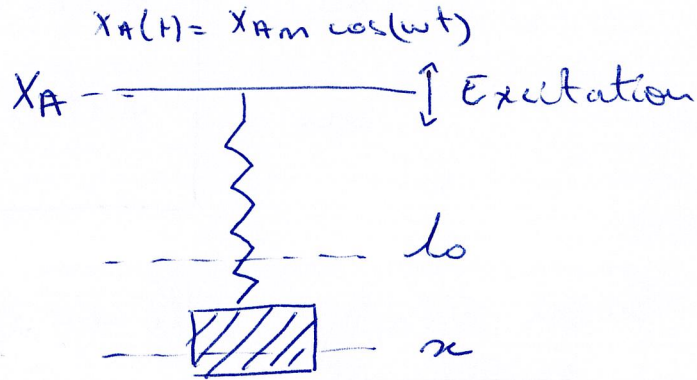 XA(t) = XAm cos(ωt)
XA
Excitation
lo
x